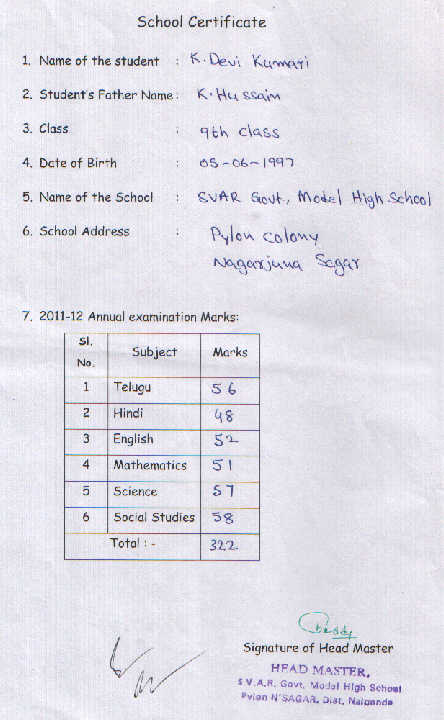 School Certificate
1. Name of the student : K. Devi Kumari
2. Student's Father Name : K. Hussain
3. Class : 9th class
4. Date of Birth : 05-06-1997
5. Name of the School : SVAR Govt., Model High School
6. School Address : Pylon colony
Nagarjuna Sagar
7. 2011-12 Annual examination Marks:
Sl. No. Subject Marks
1 Telugu 56
2 Hindi 48
3 English 52
4 Mathematics 51
5 Science 57
6 Social Studies 58
Total : - 322
Signature of Head Master
HEAD MASTER,
S.V.A.R. Govt. Model High School
Pylon N'SAGAR, Dist. Nalgonda